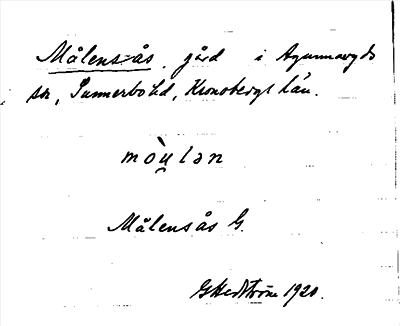 Målens-ås, gård i Agunnaryds
sn, Sunnerbo hd, Kronobergs län.
mòu̯lan
Målensås G.
G Hedström 1920.